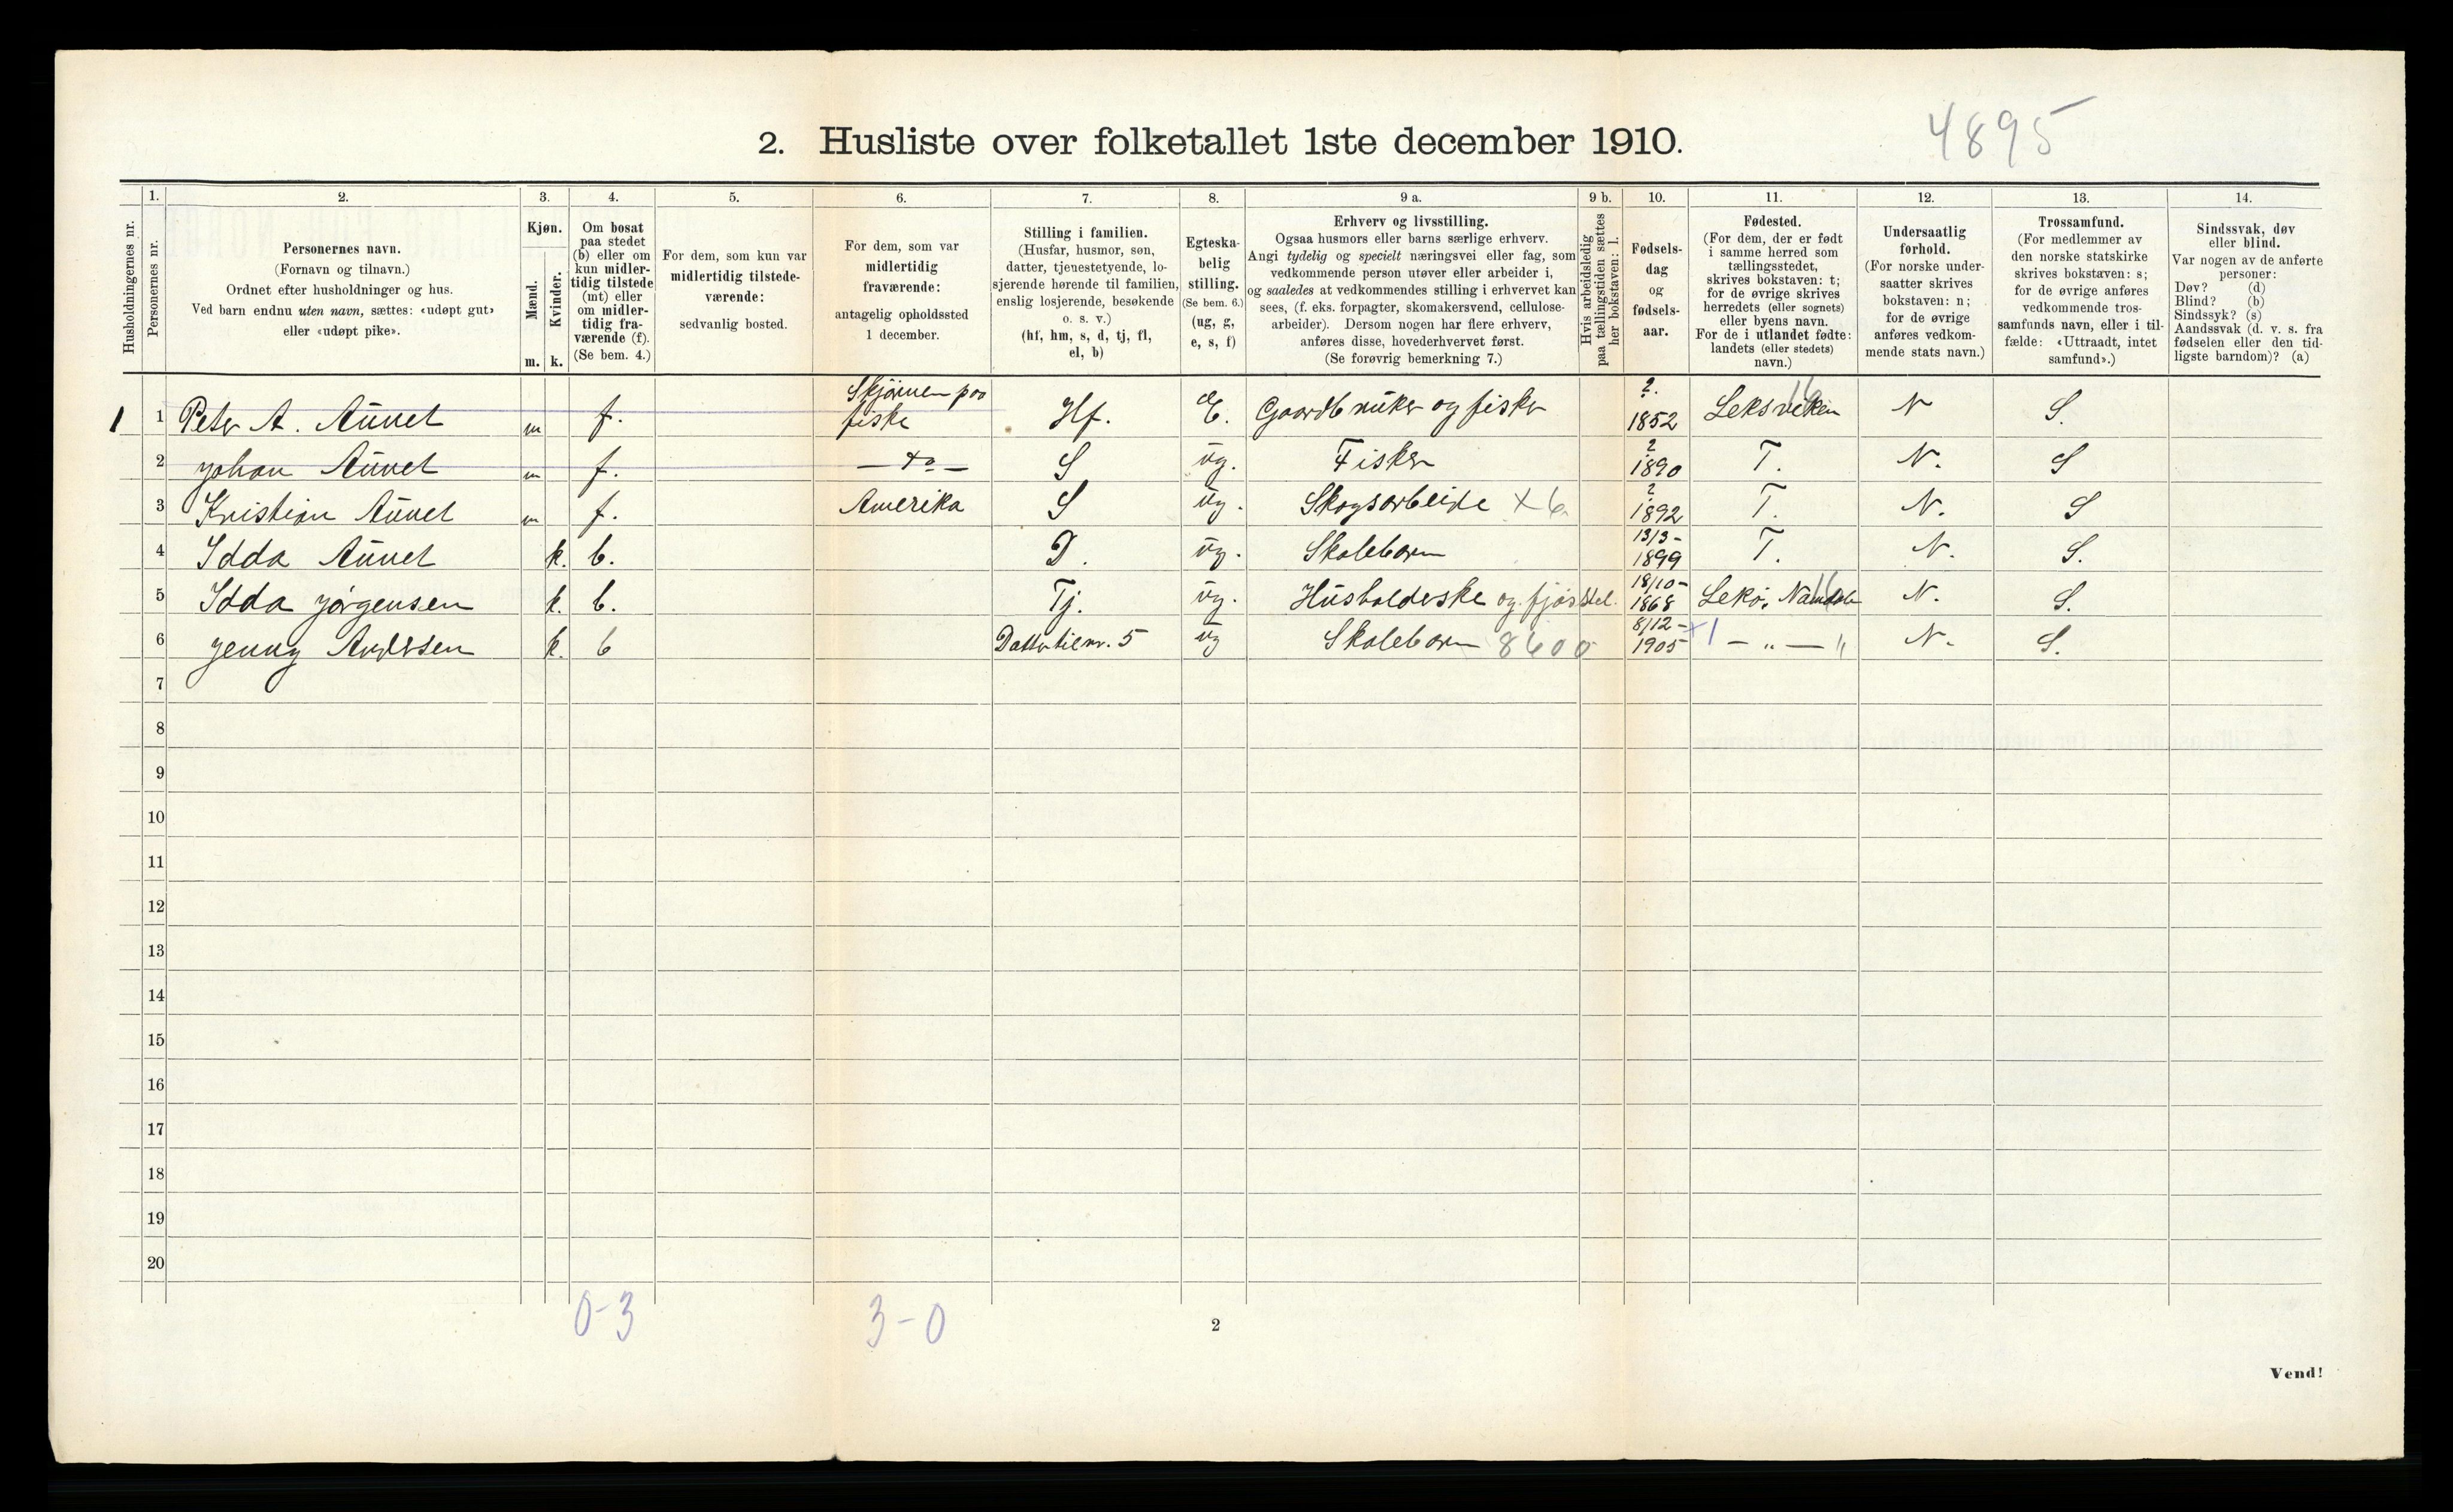 2. Husliste over folketallet 1ste december 1910.
4895
Husholdningernes nr.
1.
Personernes nr.
2.
Personernes navn.
(Fornavn og tilnavn.)
Ordnet efter husholdninger og hus.
Ved barn endnu uten navn, sættes: «udøpt gut»
eller «udøpt pike».
3.
Kjøn.
Mænd.
Kvinder.
m. k.
4.
Om bosat
paa stedet
(b) eller om
kun midler-
tidig tilstede
(mt) eller
om midler-
tidig fra-
værende (f).
(Se bem. 4.)
5.
For dem, som kun var
midlertidig tilstede-
værende:
sedvanlig bosted.
6.
For dem, som var
midlertidig
fraværende:
antagelig opholdssted
1 december.
7.
Stilling i familien.
(Husfar, husmor, søn,
datter, tjenestetyende, lo-
sjerende hørende til familien,
enslig losjerende, besøkende
o. s. v.)
(hf, hm, s, d, tj, fl,
el, b)
8.
Egteska-
belig
stilling.
(Se bem. 6.)
(ug, g,
e, s, f)
9 a.
Erhverv og livsstilling.
Ogsaa husmors eller barns særlige erhverv.
Angi tydelig og specielt næringsvei eller fag, som
vedkommende person utøver eller arbeider i,
og saaledes at vedkommendes stilling i erhvervet kan
sees, (f. eks. forpagter, skomakersvend, cellulose-
arbeider). Dersom nogen har flere erhverv,
anføres disse, hovederhvervet først.
(Se forøvrig bemerkning 7.)
9 b.
Hvis arbeidsledig
paa tællingstiden sættes
her bokstaven: l.
10.
Fødsels-
dag
og
fødsels-
aar.
11.
Fødested.
(For dem, der er født
i samme herred som
tællingsstedet,
skrives bokstaven: t;
for de øvrige skrives
herredets (eller sognets)
eller byens navn.
For de i utlandet fødte:
landets (eller stedets)
navn.)
12.
Undersaatlig
forhold.
(For norske under-
saatter skrives
bokstaven: n;
for de øvrige
anføres vedkom-
mende stats navn.)
13.
Trossamfund.
(For medlemmer av
den norske statskirke
skrives bokstaven: s;
for de øvrige anføres
vedkommende tros-
samfunds navn, eller i til-
fælde: «Uttraadt, intet
samfund».)
14.
Sindssvak, døv
eller blind.
Var nogen av de anførte
personer:
Døv? (d)
Blind? (b)
Sindssyk? (s)
Aandssvak (d. v. s. fra
fødselen eller den tid-
ligste barndom)? (a)
1 1 Peter A. Aunet m f. fiske Hf. E. Gaardbruker og fisker ?. 1852 Leksviken 16 N S.
2 Johan Aunet m f. — do — S ug. Fisker ? 1890 T. N. S
3 Kristian Aunet m f. Amerika S ug. Skogsarbeide x 6 ? 1892 T. N. S
4 Idda Aunet k. b. D. ug. Skolebarn 13/3- 1899 T. N. S.
5 Idda Jørgensen k. b. Tj. ug. Husholdeske og fjøsstel. 18/10- 1868 Lekø, 16 N. S.
6 Jenny k. b Datter til nr. 5 ug Skolebarn 8600 8/12- 1905 +1 — „ — „ N. S.
7
8
9
10
11
12
13
14
15
16
17
18
19
20
0-3
3-0
2
Vend!